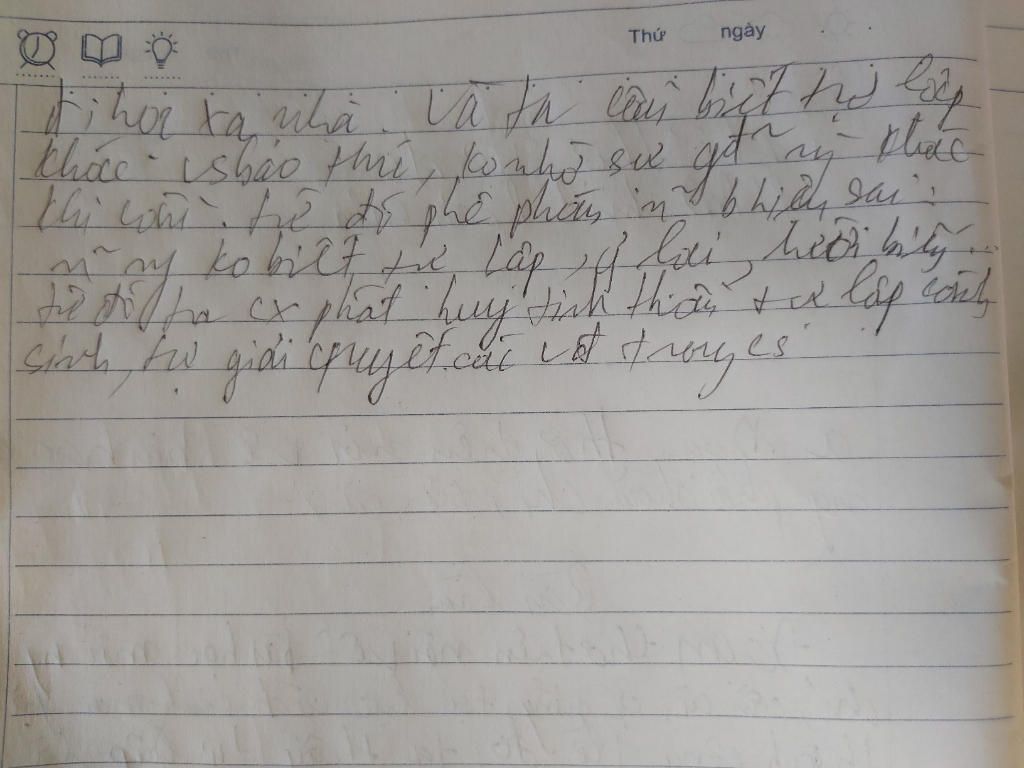 Thứ ngày
đi học xa nhà. Và ta cần biết tự lập
khác vs bảo thủ, ko nhờ sự gđ ng khác
khi cần. từ đó phê phán n~ b hiện sai:
n~ ng ko biết tự lập, ỷ lại, lười biếng...
từ đó ta cx phát huy tinh thần tự lập
sinh, tự giải quyết các vđ trong cs